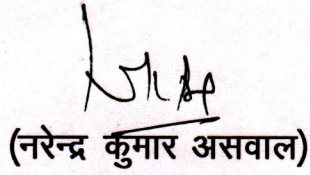 (नरेन्द्र कुमार असवाल)